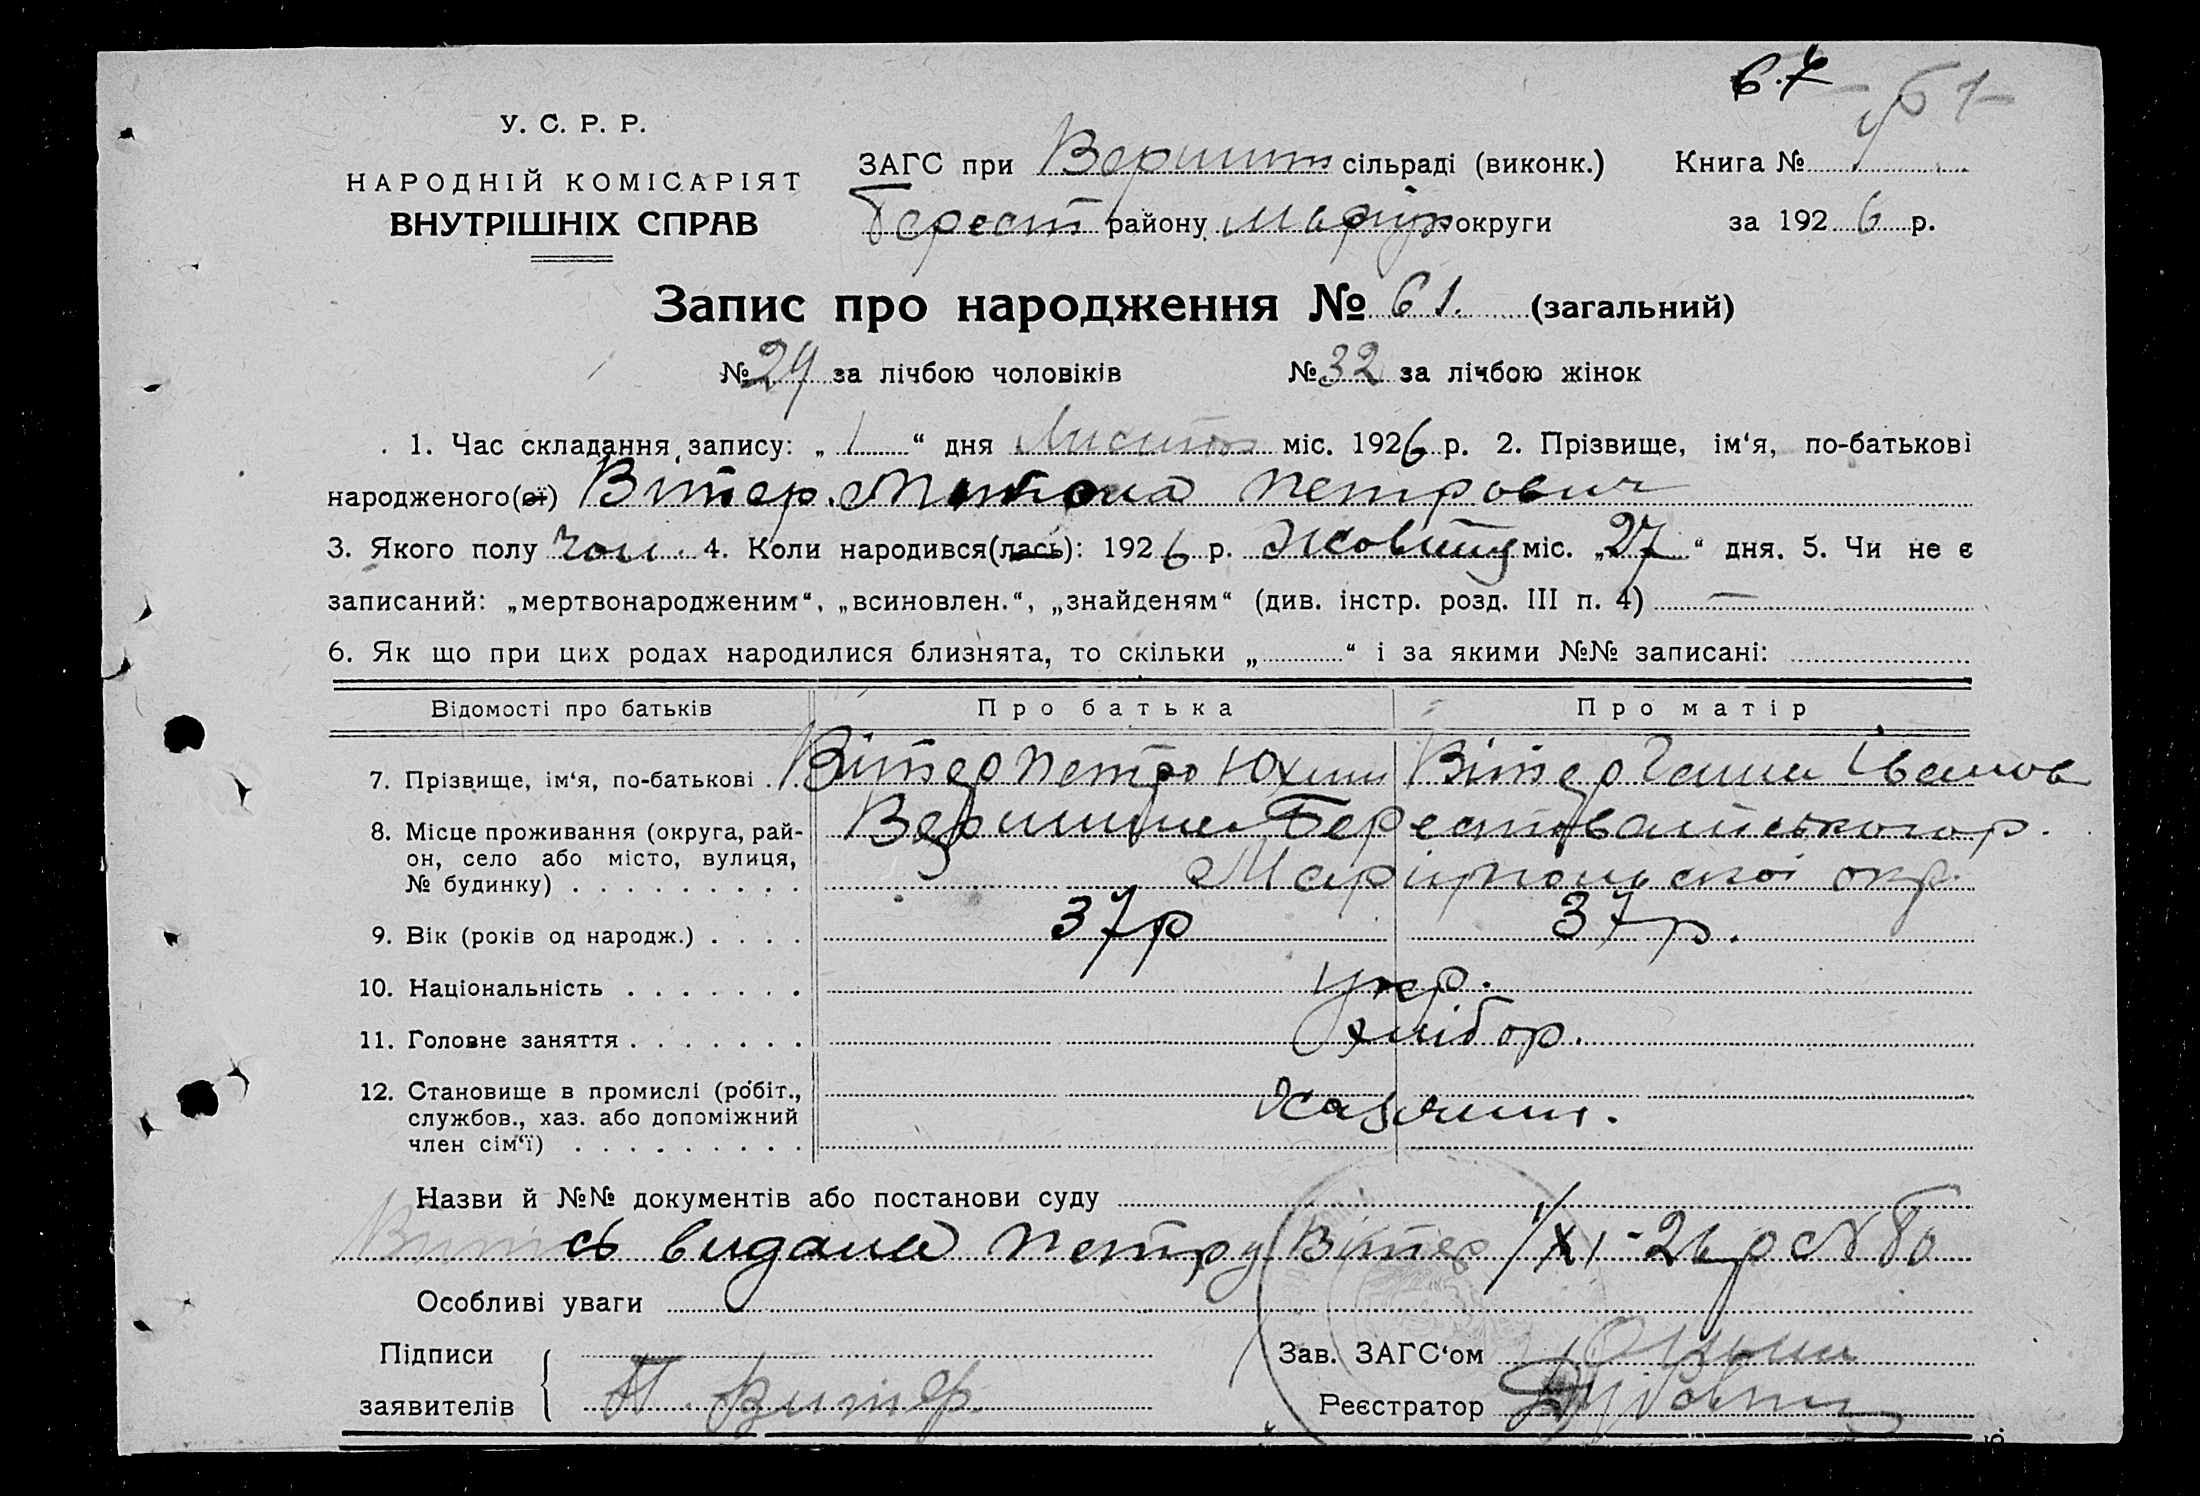 67
61
У. С. Р. Р.
НАРОДНІЙ КОМІСАРІЯТ
ВНУТРІШНІХ СПРАВ
ЗАГС при Вершин сільраді (виконк.) Книга №
Берест району Маріуп округи за 1926 р.
Запис про народження № 61. (загальний)
№ 29 за лічбою чоловіків № 32 за лічбою жінок
1. Час складання запису: „ 1 “ дня Листоп міс. 1926 р. 2. Прізвище, ім‘я, по-батькові
народженого(ої) Вітер Микола Петрович
3. Якого полу чол. 4. Коли народився(лась): 1926 р. Жовтня міс. „27“ дня. 5. Чи не є
записаний: „мертвонародженим“, „всиновлен.“, „знайденям“ (див. інстр. розд. III п. 4) —
6. Як що при цих родах народилися близнята, то скільки „ “ і за якими №№ записані:
Відомості про батьків Про батька Про матір
7. Прізвище, ім‘я, по-батькові . . Вітер Петро Юхим Вітер Ганна Іванов
8. Місце проживання (округа, рай- Вершини Берестоватського р.
он, село або місто, вулиця,
№ будинку) . . . . . . . . . Маріупольської окр.
9. Вік (років од народж.) . . . . 37 р 37 р.
10. Національність . . . . . . . укр.
11. Головне заняття . . . . . . . хлібор.
12. Становище в промислі (робіт.,
службов., хаз. або допоміжний Хазяин.
член сім‘ї) . . . . . . . . .
Назви й №№ документів або постанови суду
Витись видана Петру Вітер 1/XI-26 р № 60
Особливі уваги
Підписи Зав. ЗАГС‘ом
заявителів П. Витер. Реєстратор